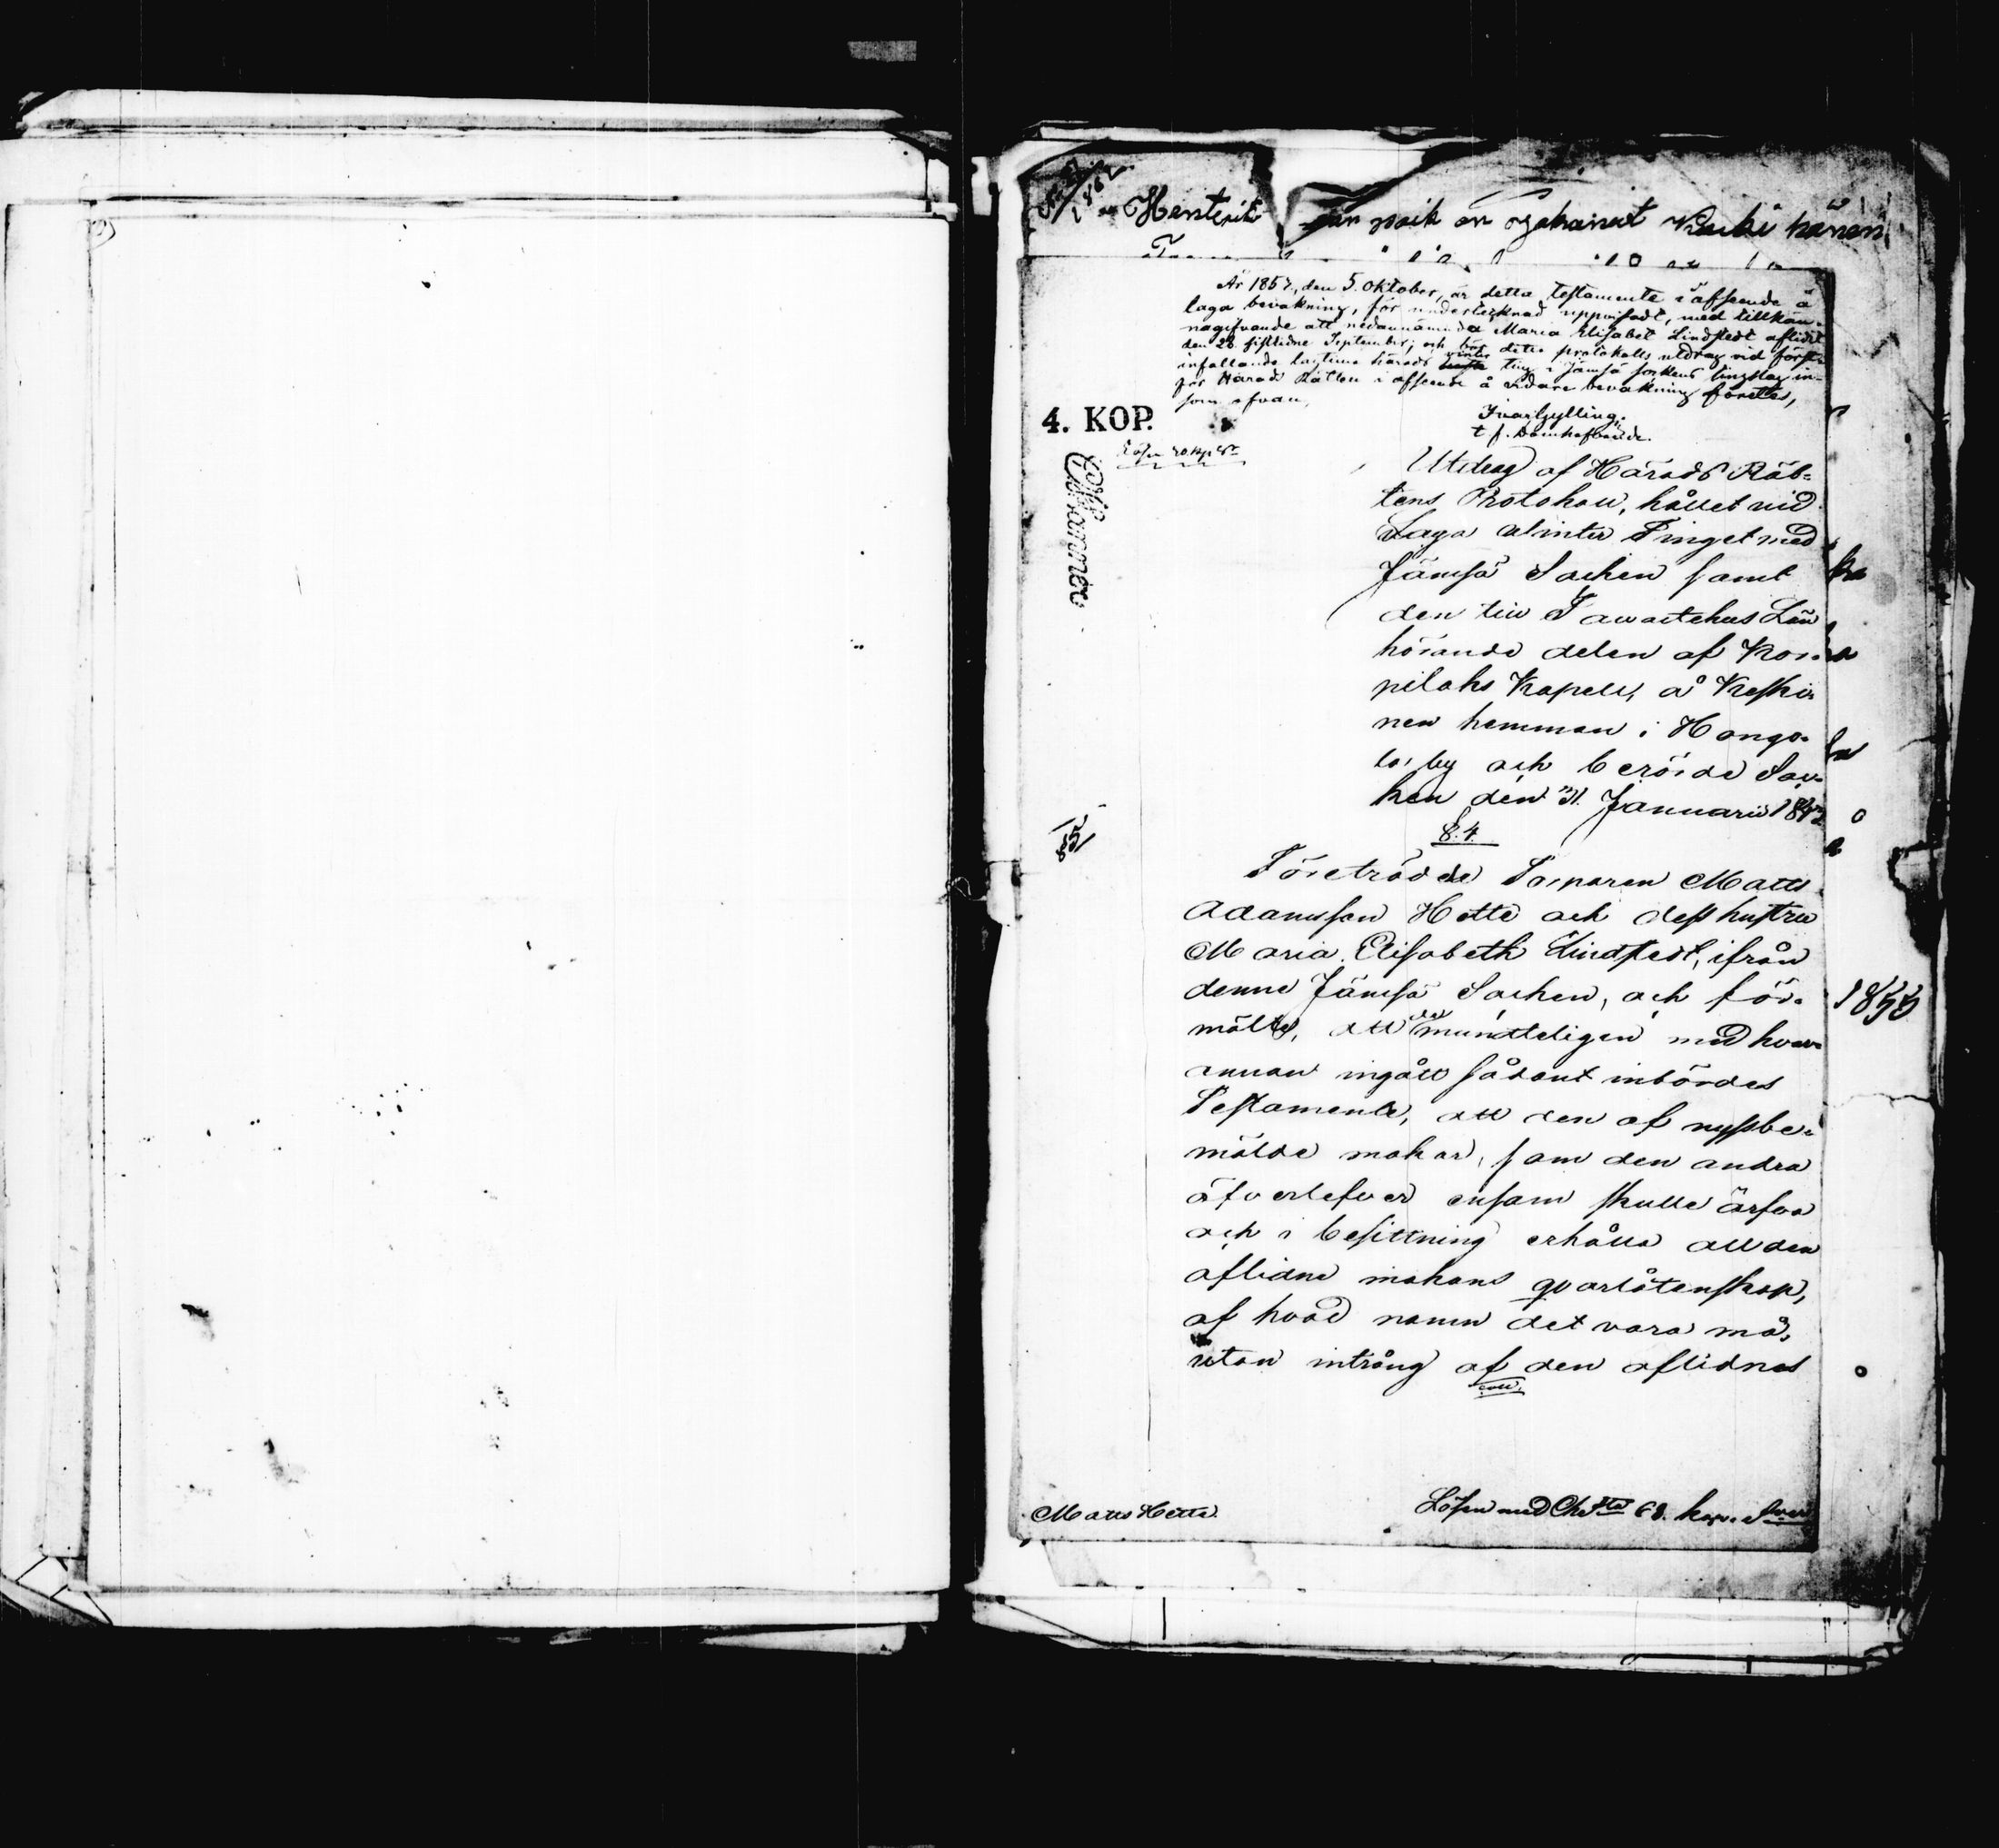 1862
Henterik
År 1857, den 5. Oktober, är detta testamente i afseende å
laga bevakning, för undertecknad uppvisadt, med tillkän-
nagifvande att nedannämnda Maria Elisabet Lindstedt aflidit
den 28. sistlidne September; och bör detta protokolls utdrag vid först
infallande lagtima härads vinter ting i Jämsä sockens tingslag in-
för Härads Rätten i afseende å vidare bevakning företes,
som ofvan,
Ivar Gylling.
t. f. Domhafvande.
4. KOP.
Lösen 20 kop Sr
Utdrag af Härads Rät-
tens Protokoll, hållet vid
Laga Winter Tinget med
Jämsä Socken samt
den till Tawastehus Län
hörande delen af Kor-
pilaks Kapell, å Keski-
nen hemman i
by och berörde Soc-
ken den 31. Januarii 1842
§. 4.
Företrädde Torparen Matts
Adamsson Hette och dess hustru
Maria Elisabeth Lindstedt, ifrån
denne Jämsä Socken, och för-
mälte, att de mundteligen med hvar-
annan ingått sådant inbördes
Testamente, att den af nyssbe-
mälde makar, som den andra
öfverlefver ensam skulle ärfva
och i besittning erhålla all den
aflidne makans qvarlåtenskap,
af hvad namn det vara må,
utan intrång af den aflidnes
coll.
1855
Matts Hette.
Lösen med Cha &ta 68. kop. Silfver